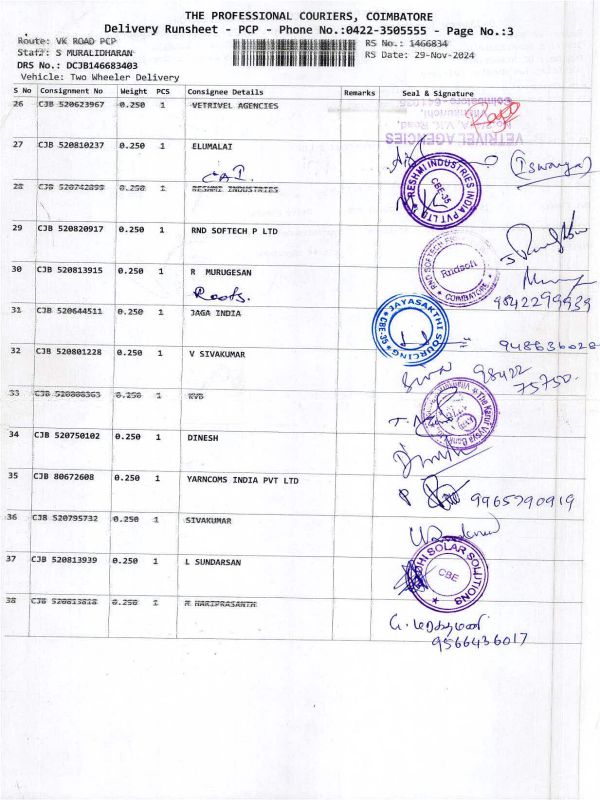 THE PROFESSIONAL COURIERS, COIMBATORE
Delivery Runsheet - PCP - Phone No.:0422-3505555 - Page No.:3
Route: VK ROAD PCP RS No.: 1466834
Staff: S MURALIDHARAN RS Date: 29-Nov-2024
DRS No.: DCJB146683403
Vehicle: Two Wheeler Delivery
S No Consignment No Weight PCS Consignee Details Remarks Seal & Signature
26 CJB 520623967 0.250 1 VETRIVEL AGENCIES
VETRIVEL AGENCIES
27 CJB 520810237 0.250 1 ELUMALAI
(Iswarya)
28 CJB 520742899 0.250 1 RESHMI INDUSTRIES
RESHMI INDUSTRIES INDIA PVT LTD
CBE-35
29 CJB 520820917 0.250 1 RND SOFTECH P LTD
RND SOFTECH
Rndsoft
COIMBATORE
30 CJB 520813915 0.250 1 R MURUGESAN
Roots.
9842299939
31 CJB 520644511 0.250 1 JAGA INDIA
JAYASAKTHI SOURCING
948636028
32 CJB 520801228 0.250 1 V SIVAKUMAR
Siva 98422
75750.
33 CJB 520808363 0.250 1 KVB
The Karur Vysya Bank
34 CJB 520750102 0.250 1 DINESH
Dinesh
35 CJB 80672608 0.250 1 YARNCOMS INDIA PVT LTD
9965790919
36 CJB 520795732 0.250 1 SIVAKUMAR
37 CJB 520813939 0.250 1 L SUNDARSAN
SOLAR SOLUTIONS
CBE
38 CJB 520813818 0.250 1 M HARIPRASANTH
9566436017